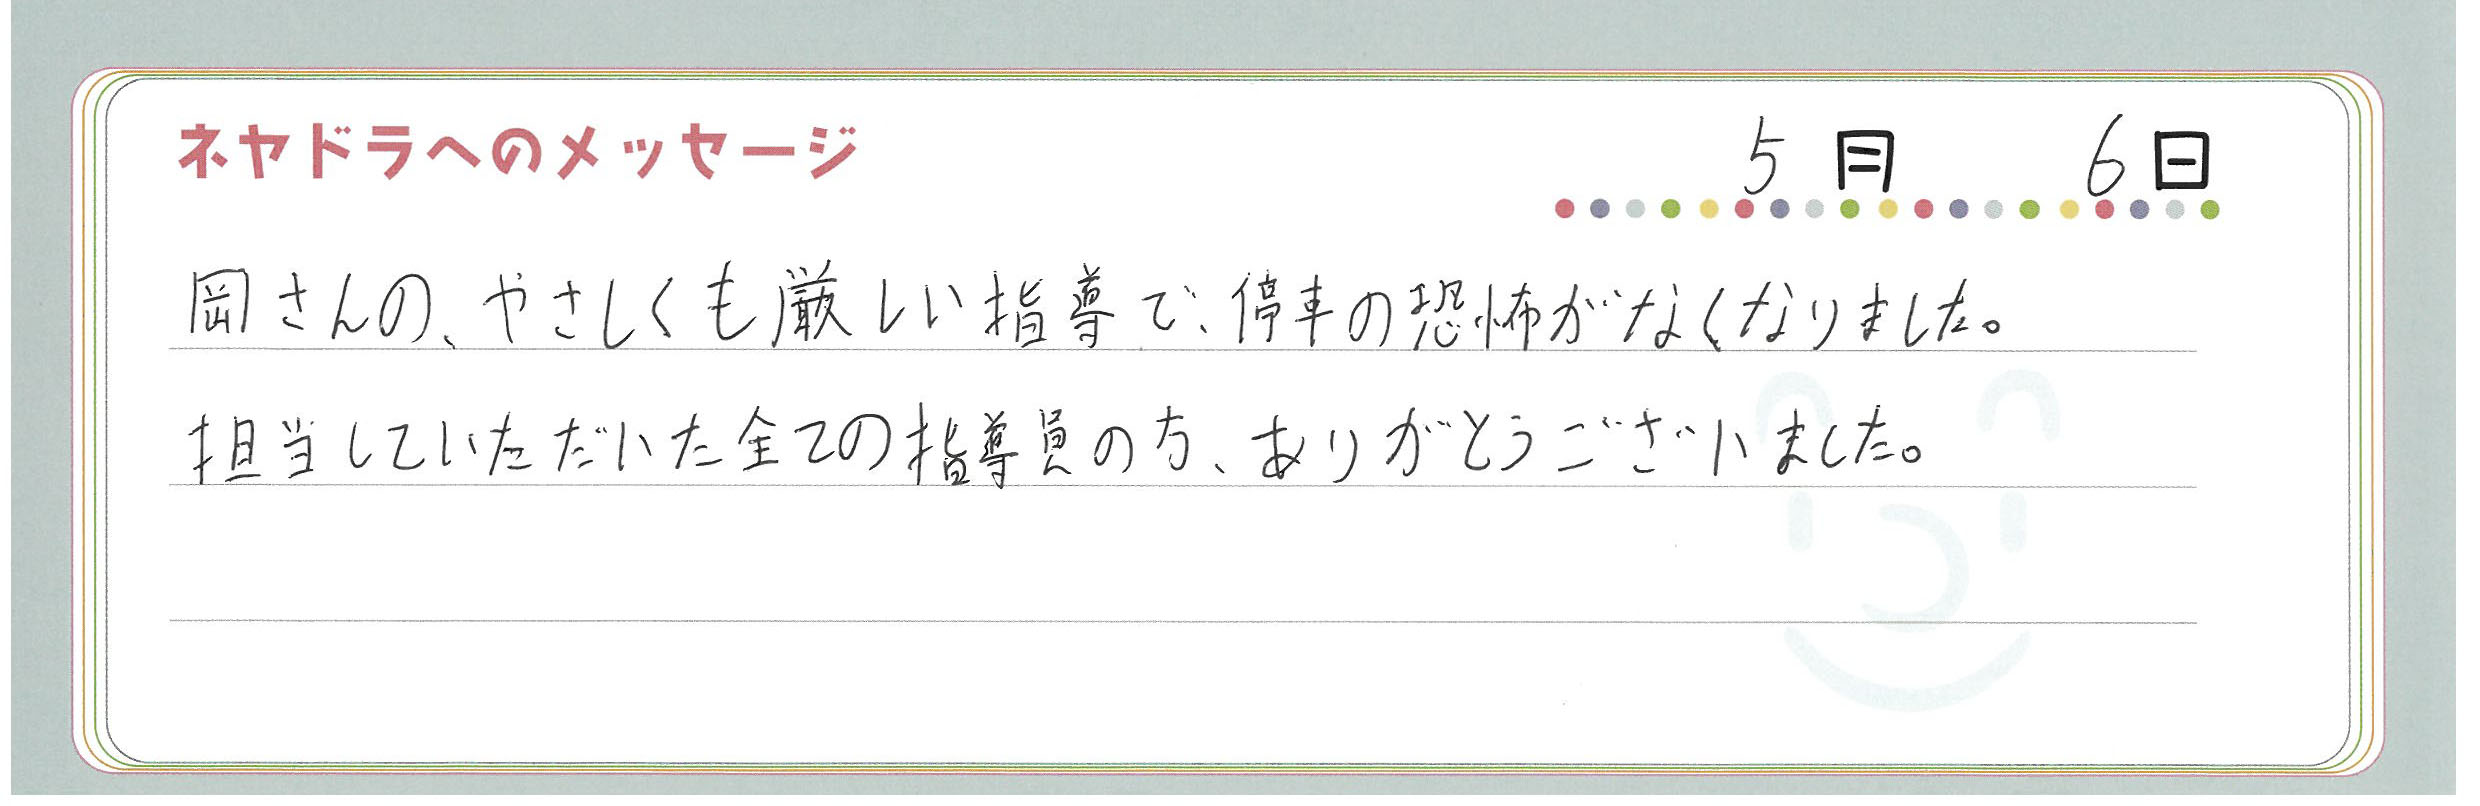 ネヤドラへのメッセージ
5月 6日
岡さんの、やさしくも厳しい指導で、停車の恐怖がなくなりました。
担当していただいた全ての指導員の方、ありがとうございました。